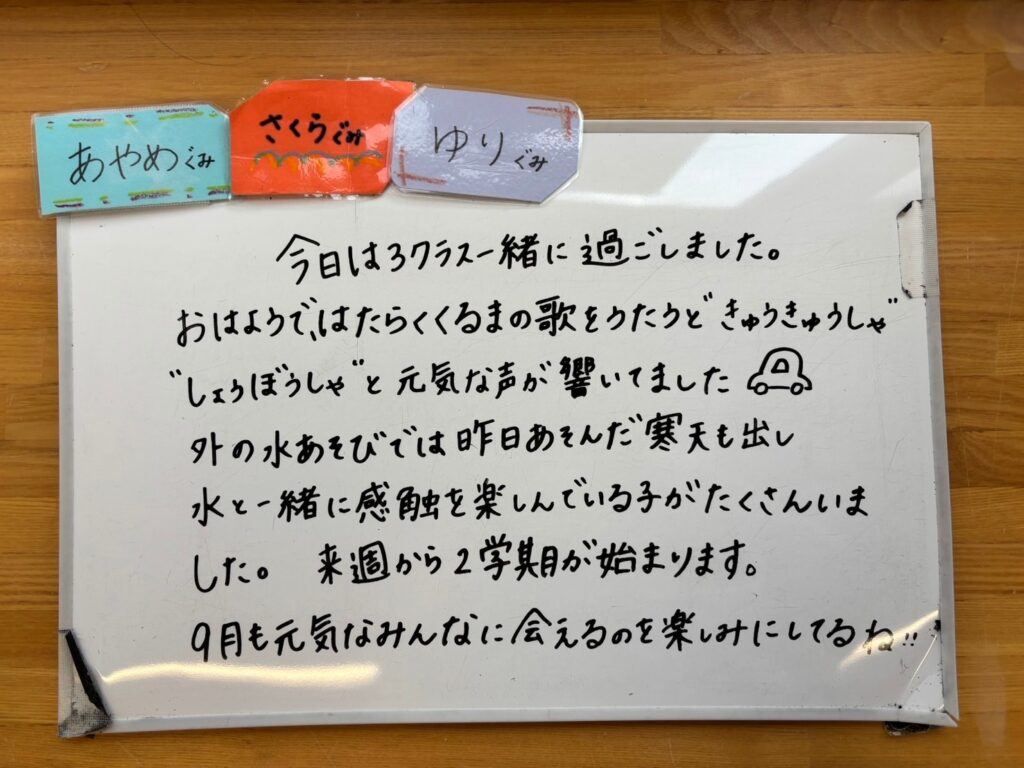 あやめぐみ
さくらぐみ
ゆりぐみ
今日は3クラス一緒に過ごしました。
おはようで、はたらくくるまの歌をうたうと"きゅうきゅうしゃ"
"しょうぼうしゃ"と元気な声が響いてました
外の水あそびでは昨日あそんだ寒天も出し
水と一緒に感触を楽しんでいる子がたくさんいま
した。 来週から2学期が始まります。
9月も元気なみんなに会えるのを楽しみにしてるね!!